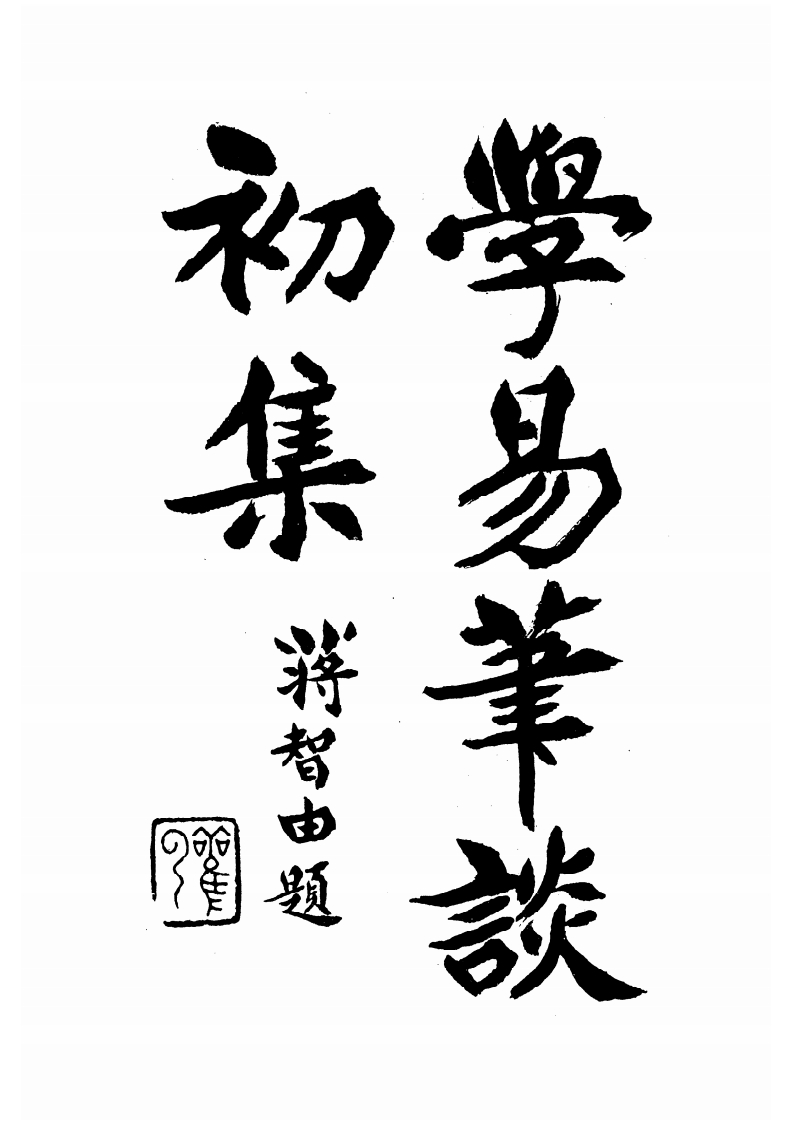 學易筆談
初集
蔣智由題